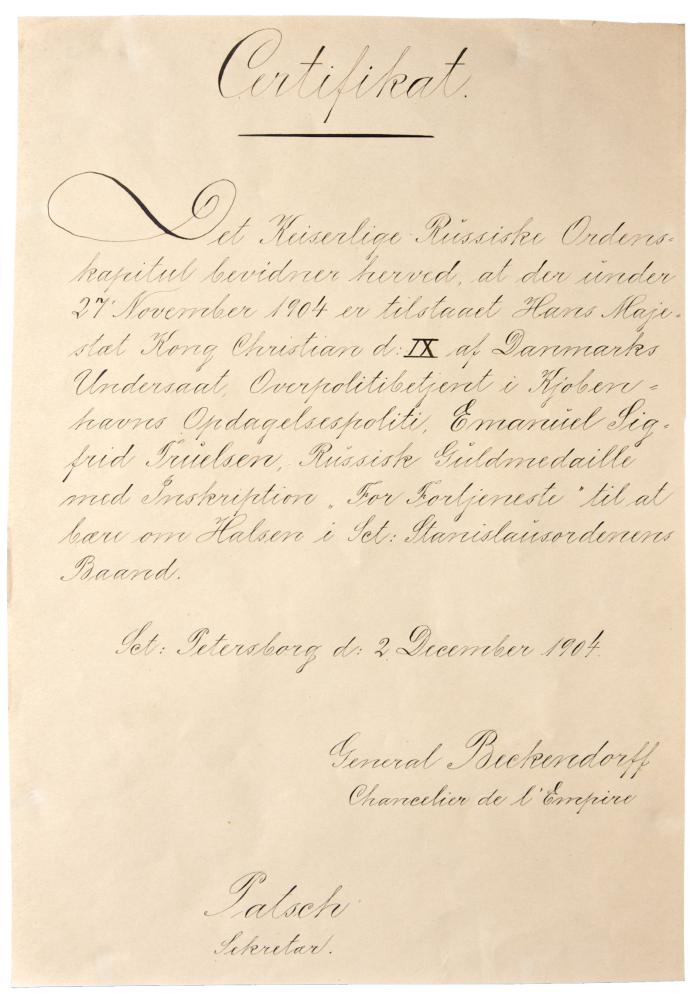 Certifikat.
Det Keiserlige Russiske Ordens-
kapitul bevidner herved, at der under
27' November 1904 er tilstaaet Hans Maje-
stæt Kong Christian d: IX af Danmarks
Undersaat, Overpolitibetjent i Kjøben-
havns Opdagelsespoliti, Emanuel Sig-
frid Truelsen, Russisk Guldmedaille
med Inskription „For Fortjeneste" til at
bære om Halsen i Sct: Stanislausordenens
Baand.
Sct: Petersborg d: 2 December 1904.
General Beckendorff
Chancelier de l'Empire
Patsch
Sekretær.